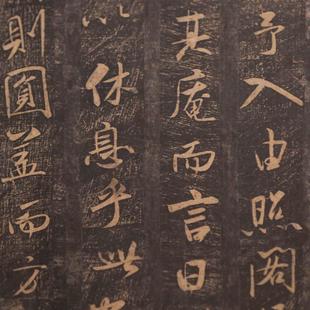 予入由照阁
其庵而言曰
以休息乎此
则圓盖而方